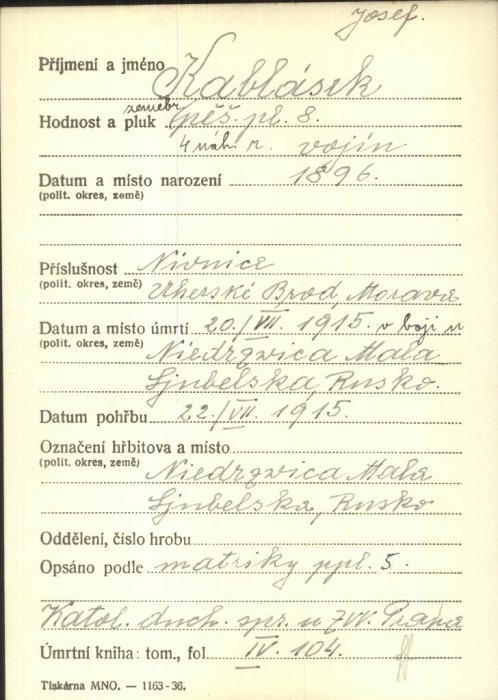 Josef.
Příjmení a jméno Kablásek
zeměbr.
Hodnost a pluk pěš. pl. 8.
4 náh. r. vojín
Datum a místo narození 1896.
(polit. okres, země)
Příslušnost Nivnice
(polit. okres, země) Uherské Brod, Morava
Datum a místo úmrtí 20./VII. 1915. v boji u
(polit. okres, země) Niedrzwica Mala
Ljubelska, Rusko.
Datum pohřbu 22./VII. 1915.
Označení hřbitova a místo
(polit. okres, země) Niedrzwica Mala
Ljubelska, Rusko
Oddělení, číslo hrobu
Opsáno podle matriky ppl. 5.
Katol. duch. spr. u ZVV. Praha
Úmrtní kniha: tom., fol. IV. 104.
Tiskárna MNO. — 1163-36.